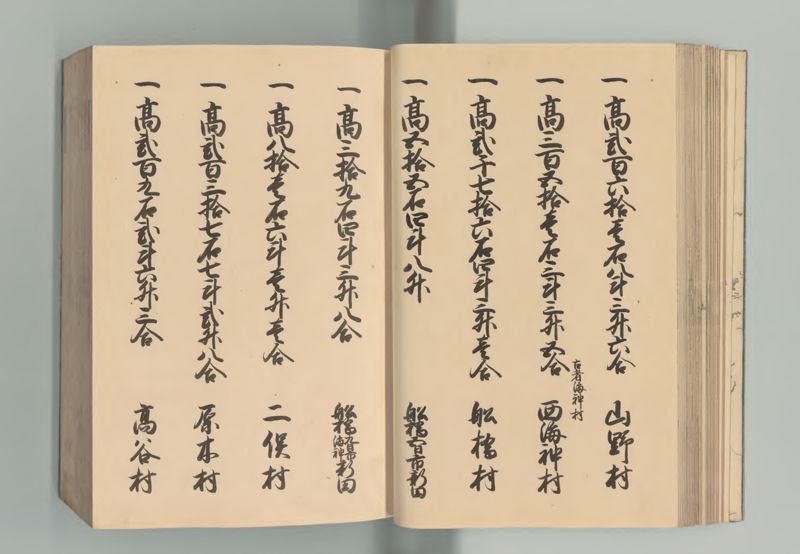 一高弐百六拾壱石八斗三升六合 山野村
一高三百五拾壱石三斗三升五合 古者海神村 西海神村
一高弐千七拾六石四斗三升壱合 船橋村
一高五拾五石四斗八升 船橋五日市新田
一高三拾九石四斗三升八合 船橋五日市海神新田
一高八拾壱石六斗壱升壱合 二俣村
一高弐百三拾七石七斗弐升八合 原木村
一高弐百九石弐斗六升三合 高谷村